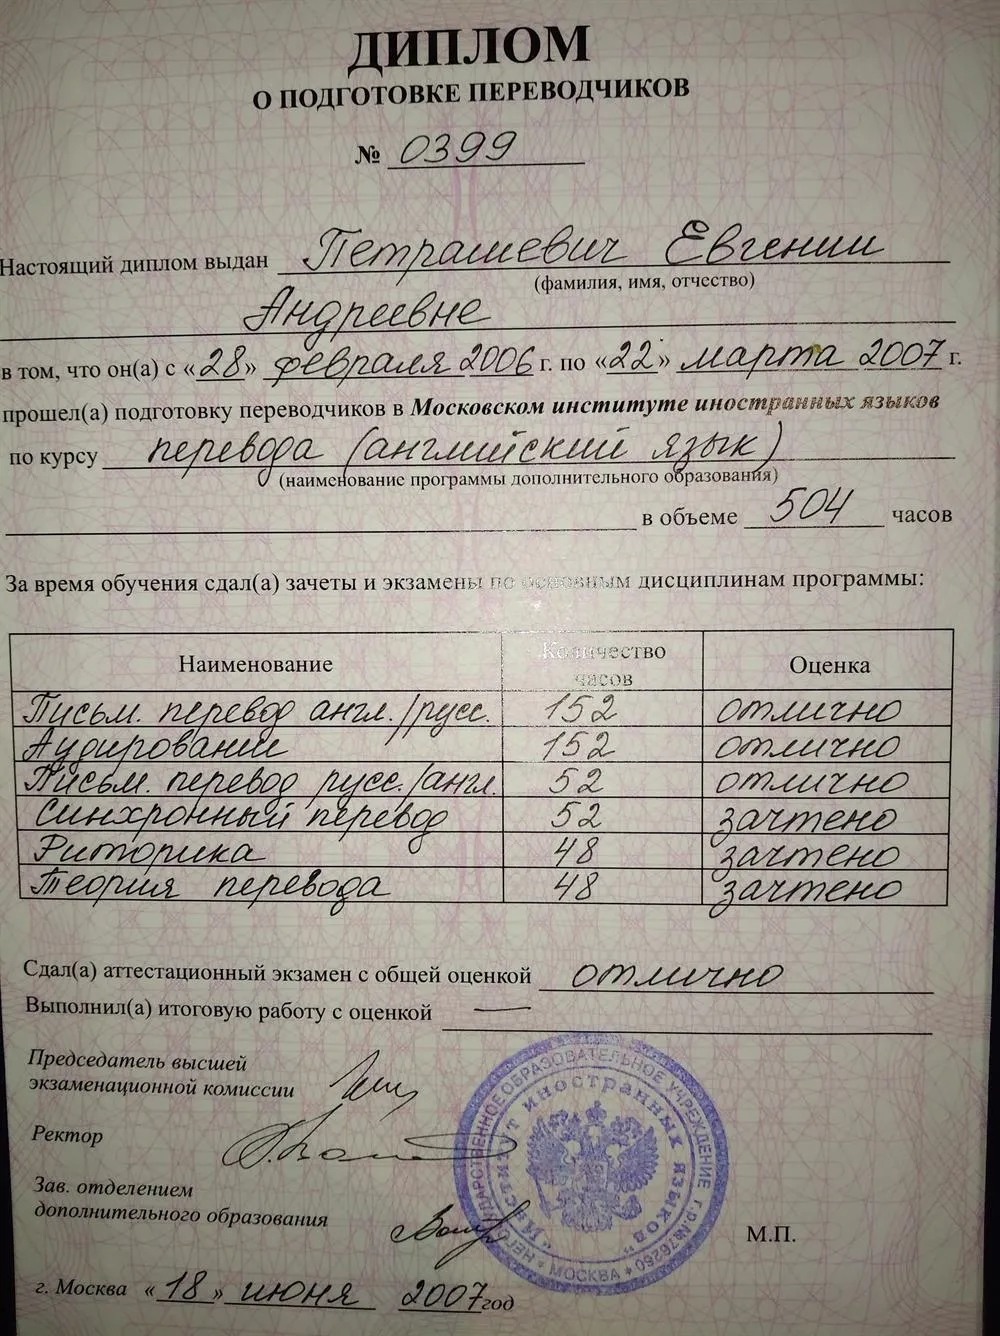 ДИПЛОМ
О ПОДГОТОВКЕ ПЕРЕВОДЧИКОВ
№ 0399
Настоящий диплом выдан Петрашевич Евгении
(фамилия, имя, отчество)
Андреевне
в том, что он(а) с «28» февраля 2006 г. по «22» марта 2007 г.
прошел(а) подготовку переводчиков в Московском институте иностранных языков
по курсу перевода (английский язык)
(наименование программы дополнительного образования)
в объеме 504 часов
За время обучения сдал(а) зачеты и экзамены по основным дисциплинам программы:
Наименование Количество часов Оценка
Письм. перевод англ./русс. 152 отлично
Аудирование 152 отлично
Письм. перевод русс./англ. 52 отлично
Синхронный перевод 52 зачтено
Риторика 48 зачтено
Теория перевода 48 зачтено
Сдал(а) аттестационный экзамен с общей оценкой отлично
Выполнил(а) итоговую работу с оценкой —
Председатель высшей
экзаменационной комиссии
Ректор
Зав. отделением
дополнительного образования
НЕГОСУДАРСТВЕННОЕ ОБРАЗОВАТЕЛЬНОЕ УЧРЕЖДЕНИЕ г.р.№76260 * МОСКВА *
"Институт иностранных языков"
М.П.
г. Москва «18» июня 2007 год